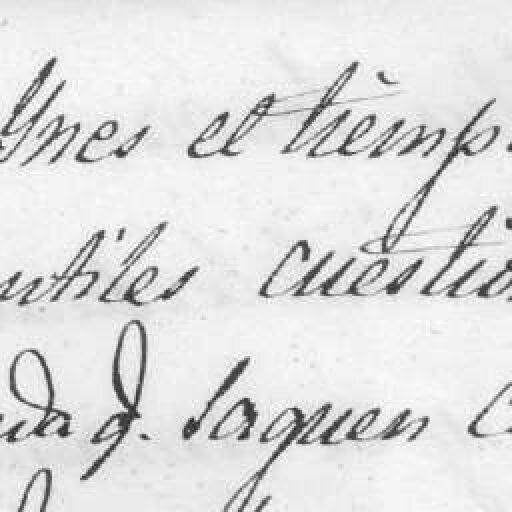 Ynes el tiemp
utiles cuestion
da q. saquen